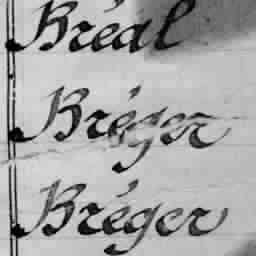 Bréal
Bréger
Bréger